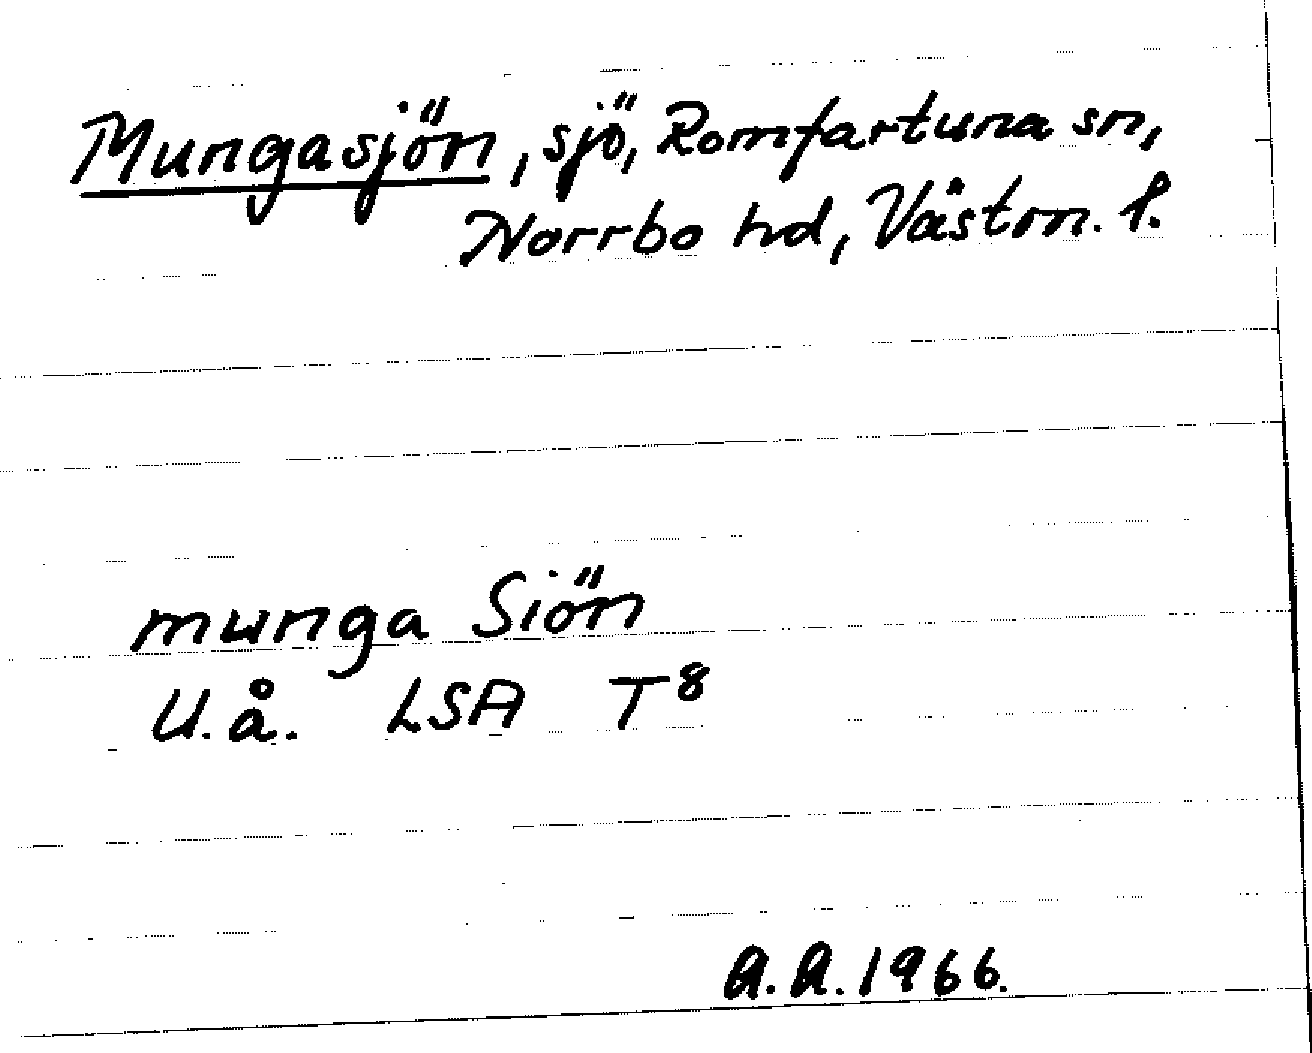 Mungasjön, sjö, Romfartuna sn,
Norrbo hd, Västm. l.
munga Siön
U.å. LSA T8
A.A. 1966.